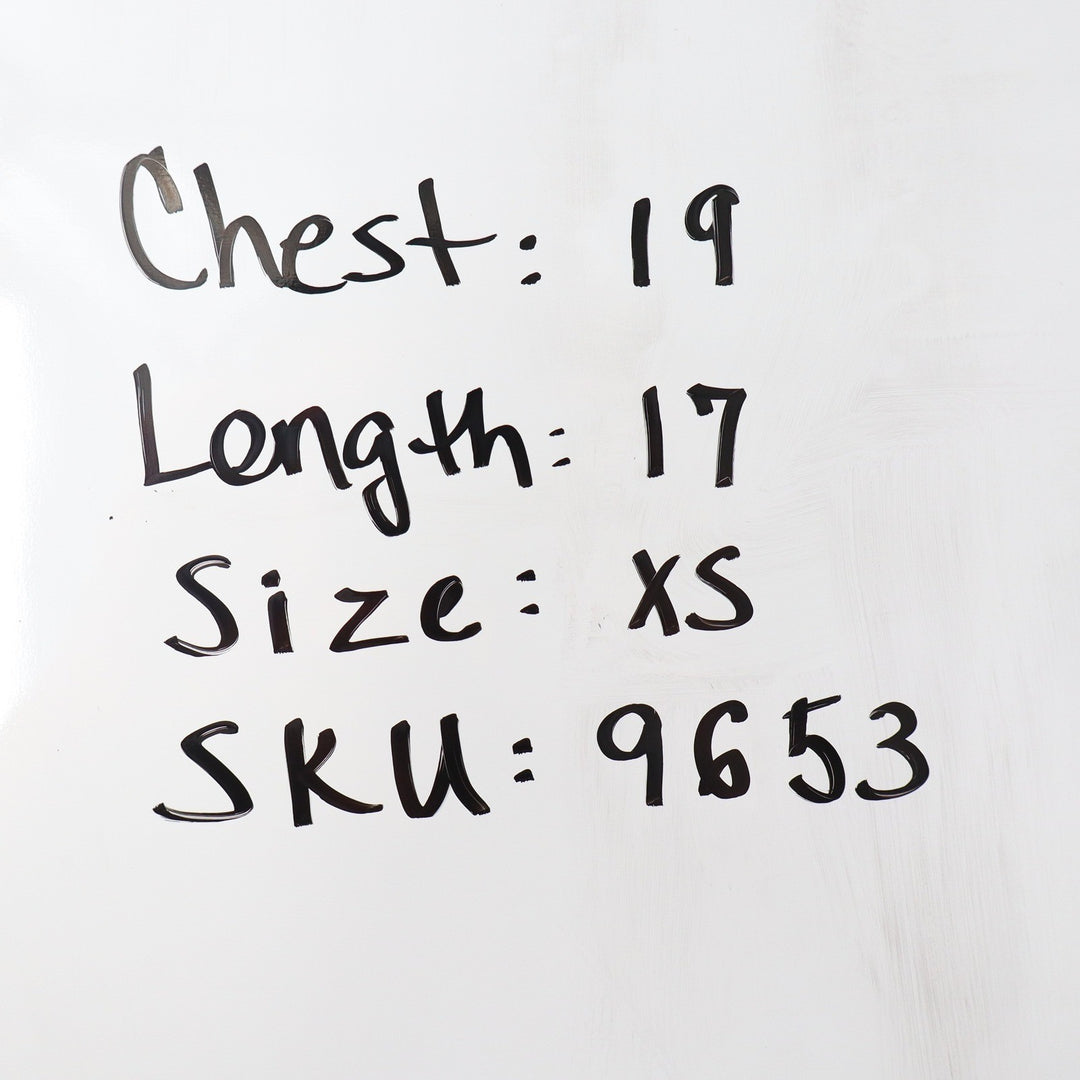 Chest: 19
Length: 17
Size: XS
SKU: 9653